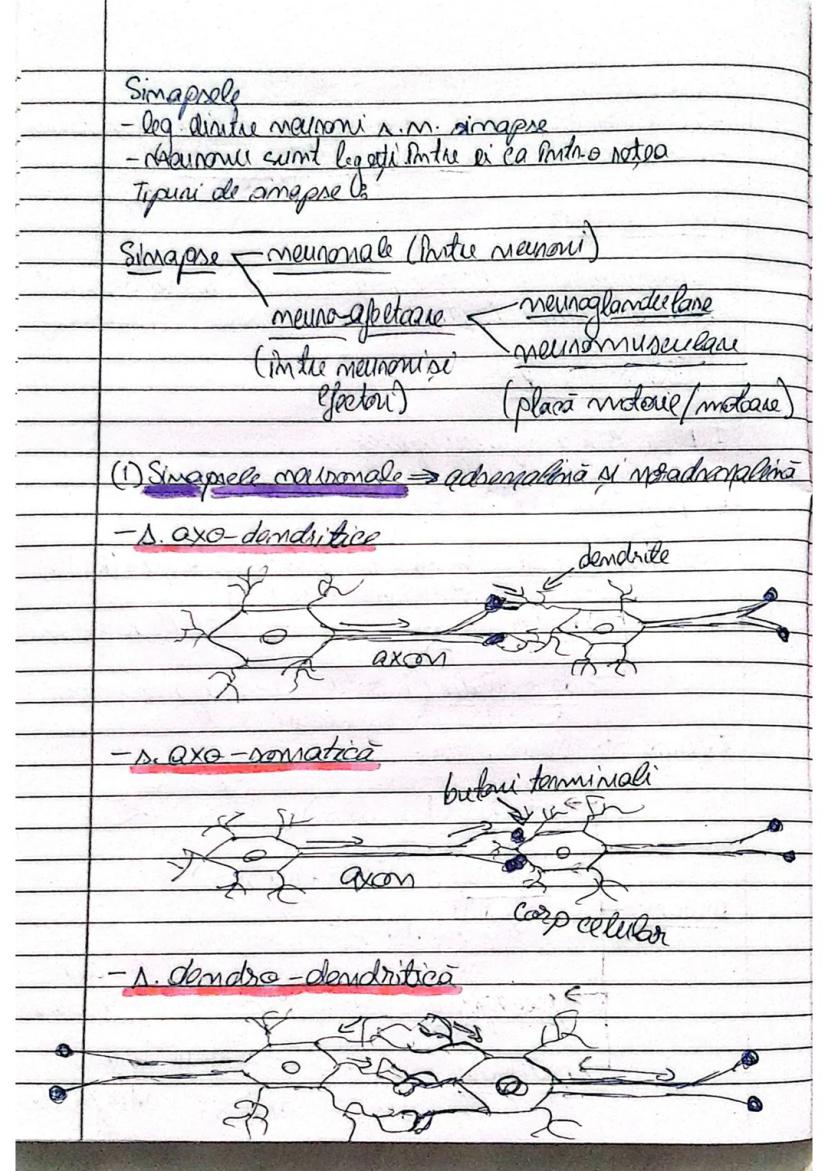 Sinapsele
- leg. dintre neuroni s.m. sinapse
- Neuronii sunt legați între ei ca într-o rețea
Tipuri de sinapse:
Sinapse neuronale (între neuroni)
neuro-efectoare neuroglandulare
(între neuroni și neuromusculare
efectori) (placă motorie/motoare)
(1) Sinapsele neuronale => adrenalină și noradrenalină
- s. axo-dendritice
dendrite
axon
- s. axo-somatică
butoni terminali
axon
corp celular
- s. dendro-dendritică